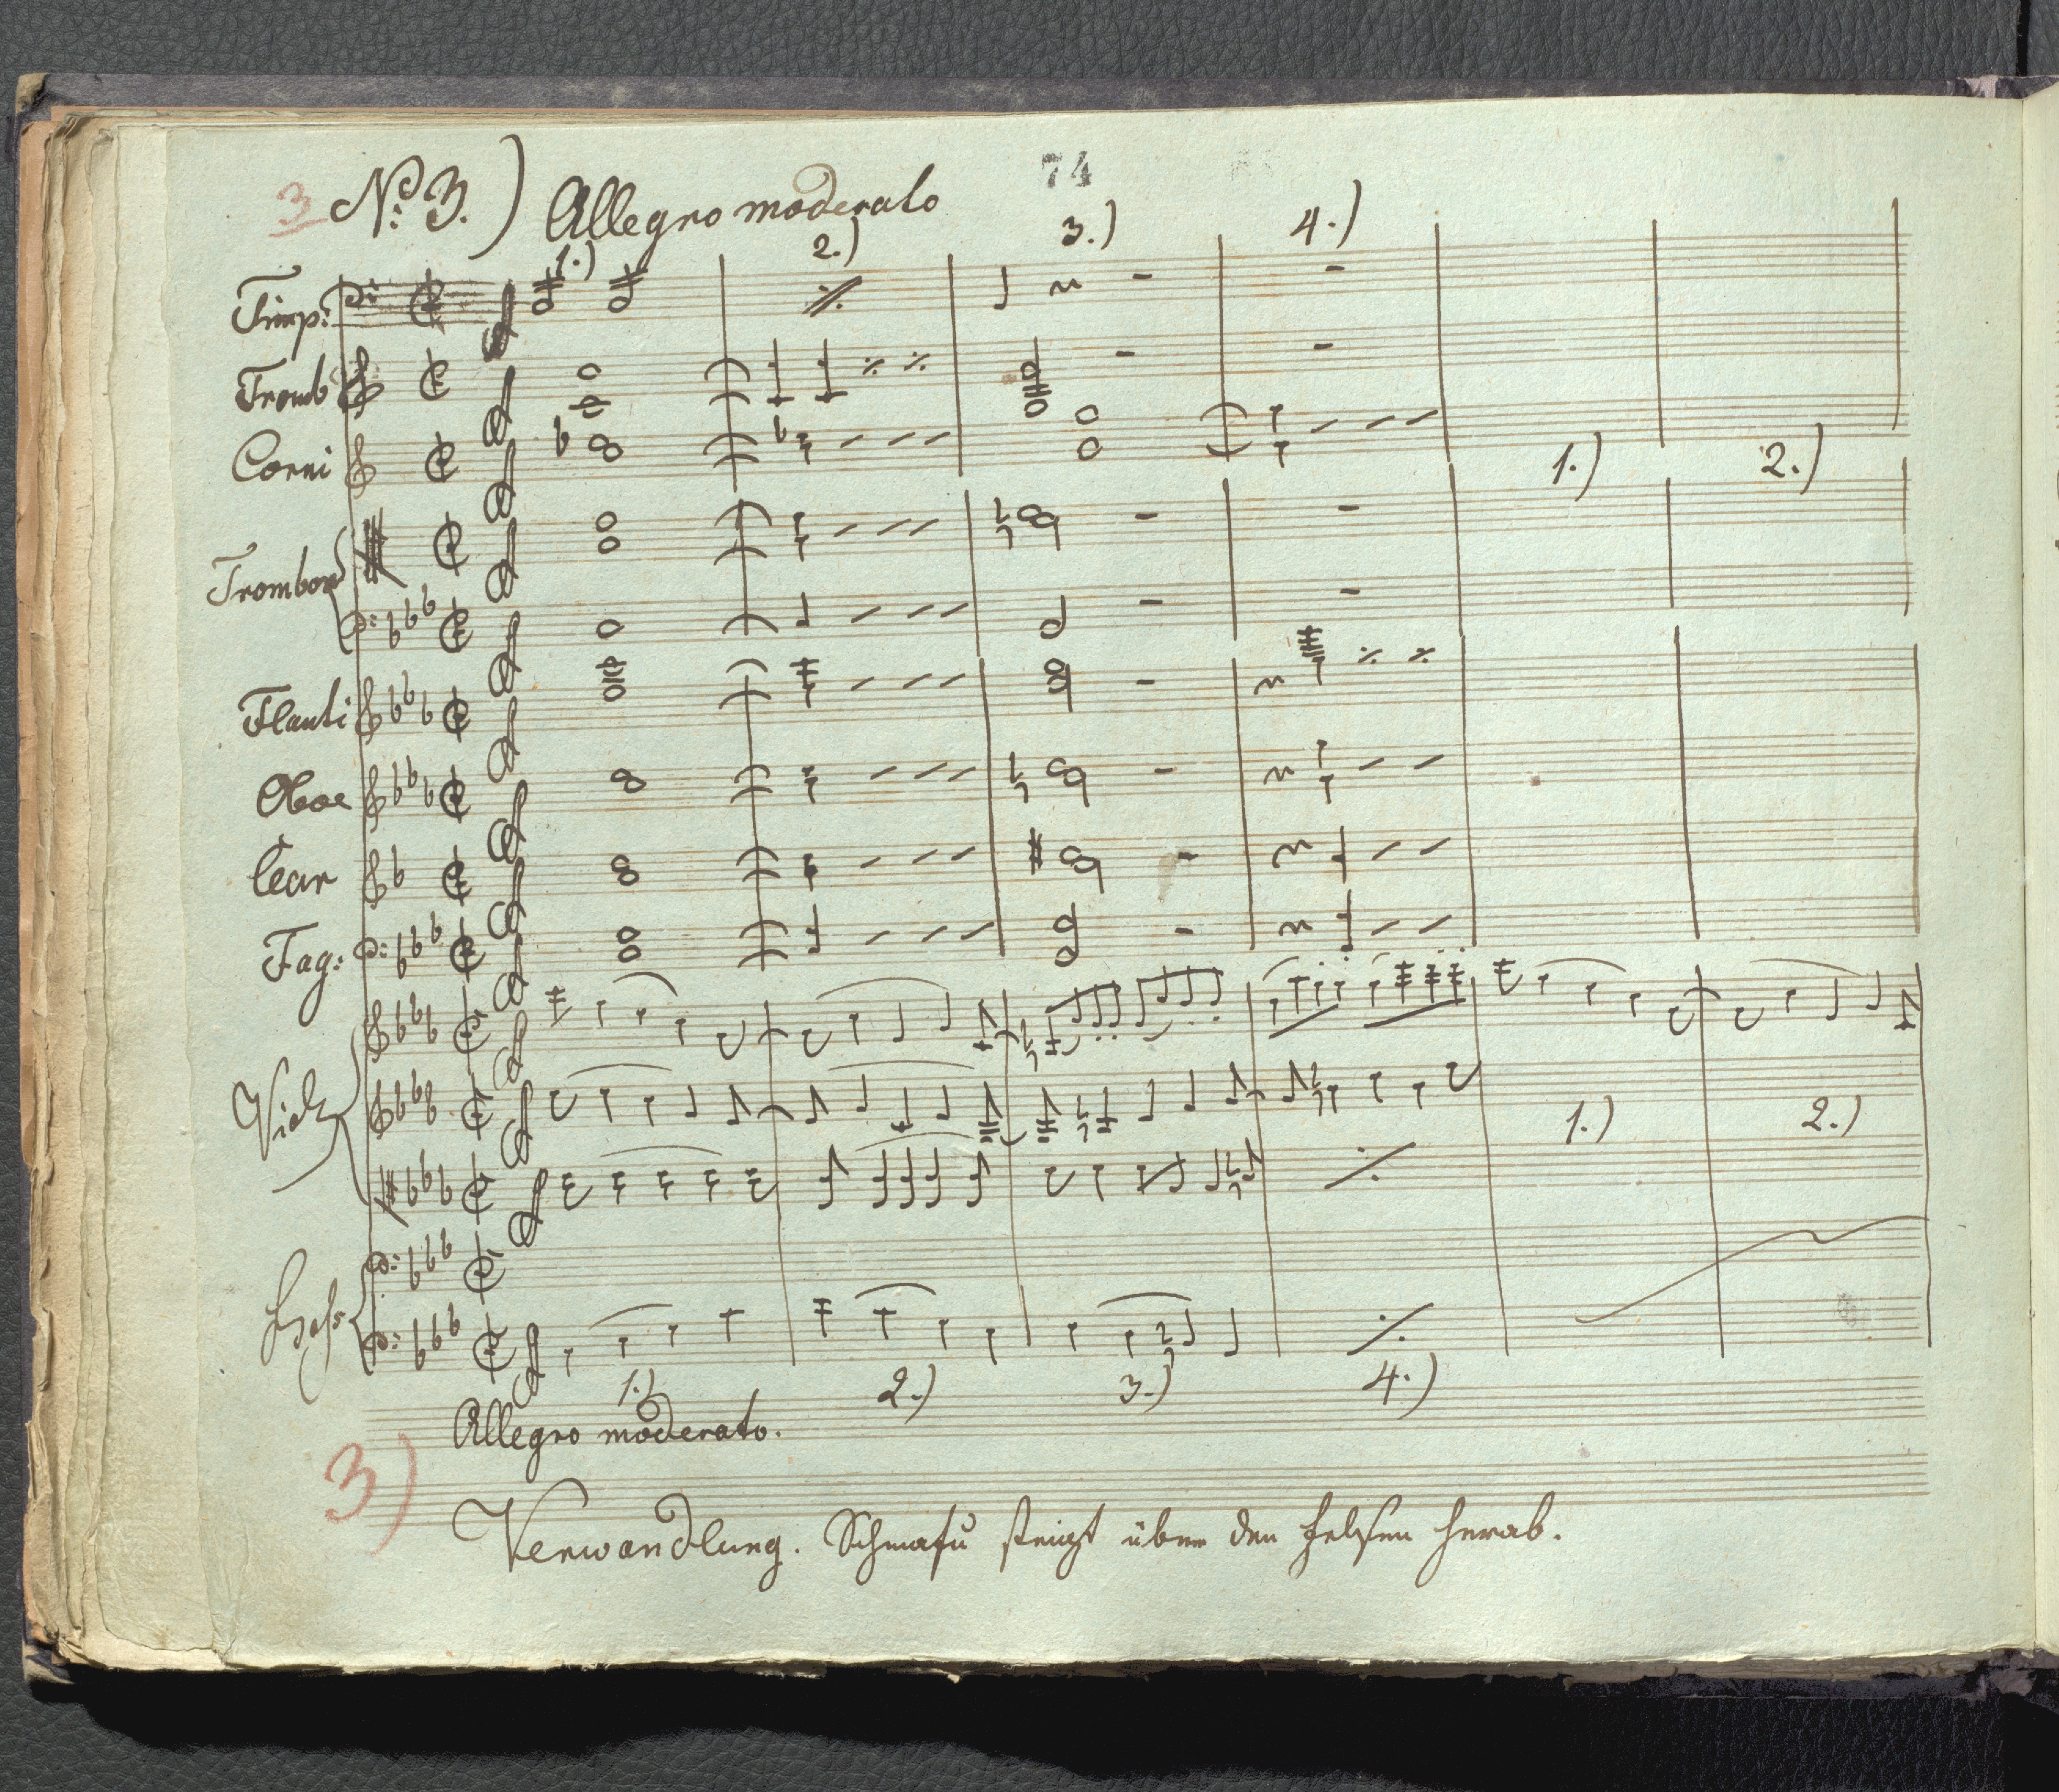 3 No: 3.) Allegro moderato 74
1.) 2.) 3.) 4.)
Timp:
Tromb
Corni
1.) 2.)
Trombon
Flauti
Oboe
Clar
Fag:
Viol:
1.) 2.)
Bass
1.) 2.) 3.) 4.)
Allegro moderato.
3)
Verwandlung. Schmafu steigt über den Felsen herab.